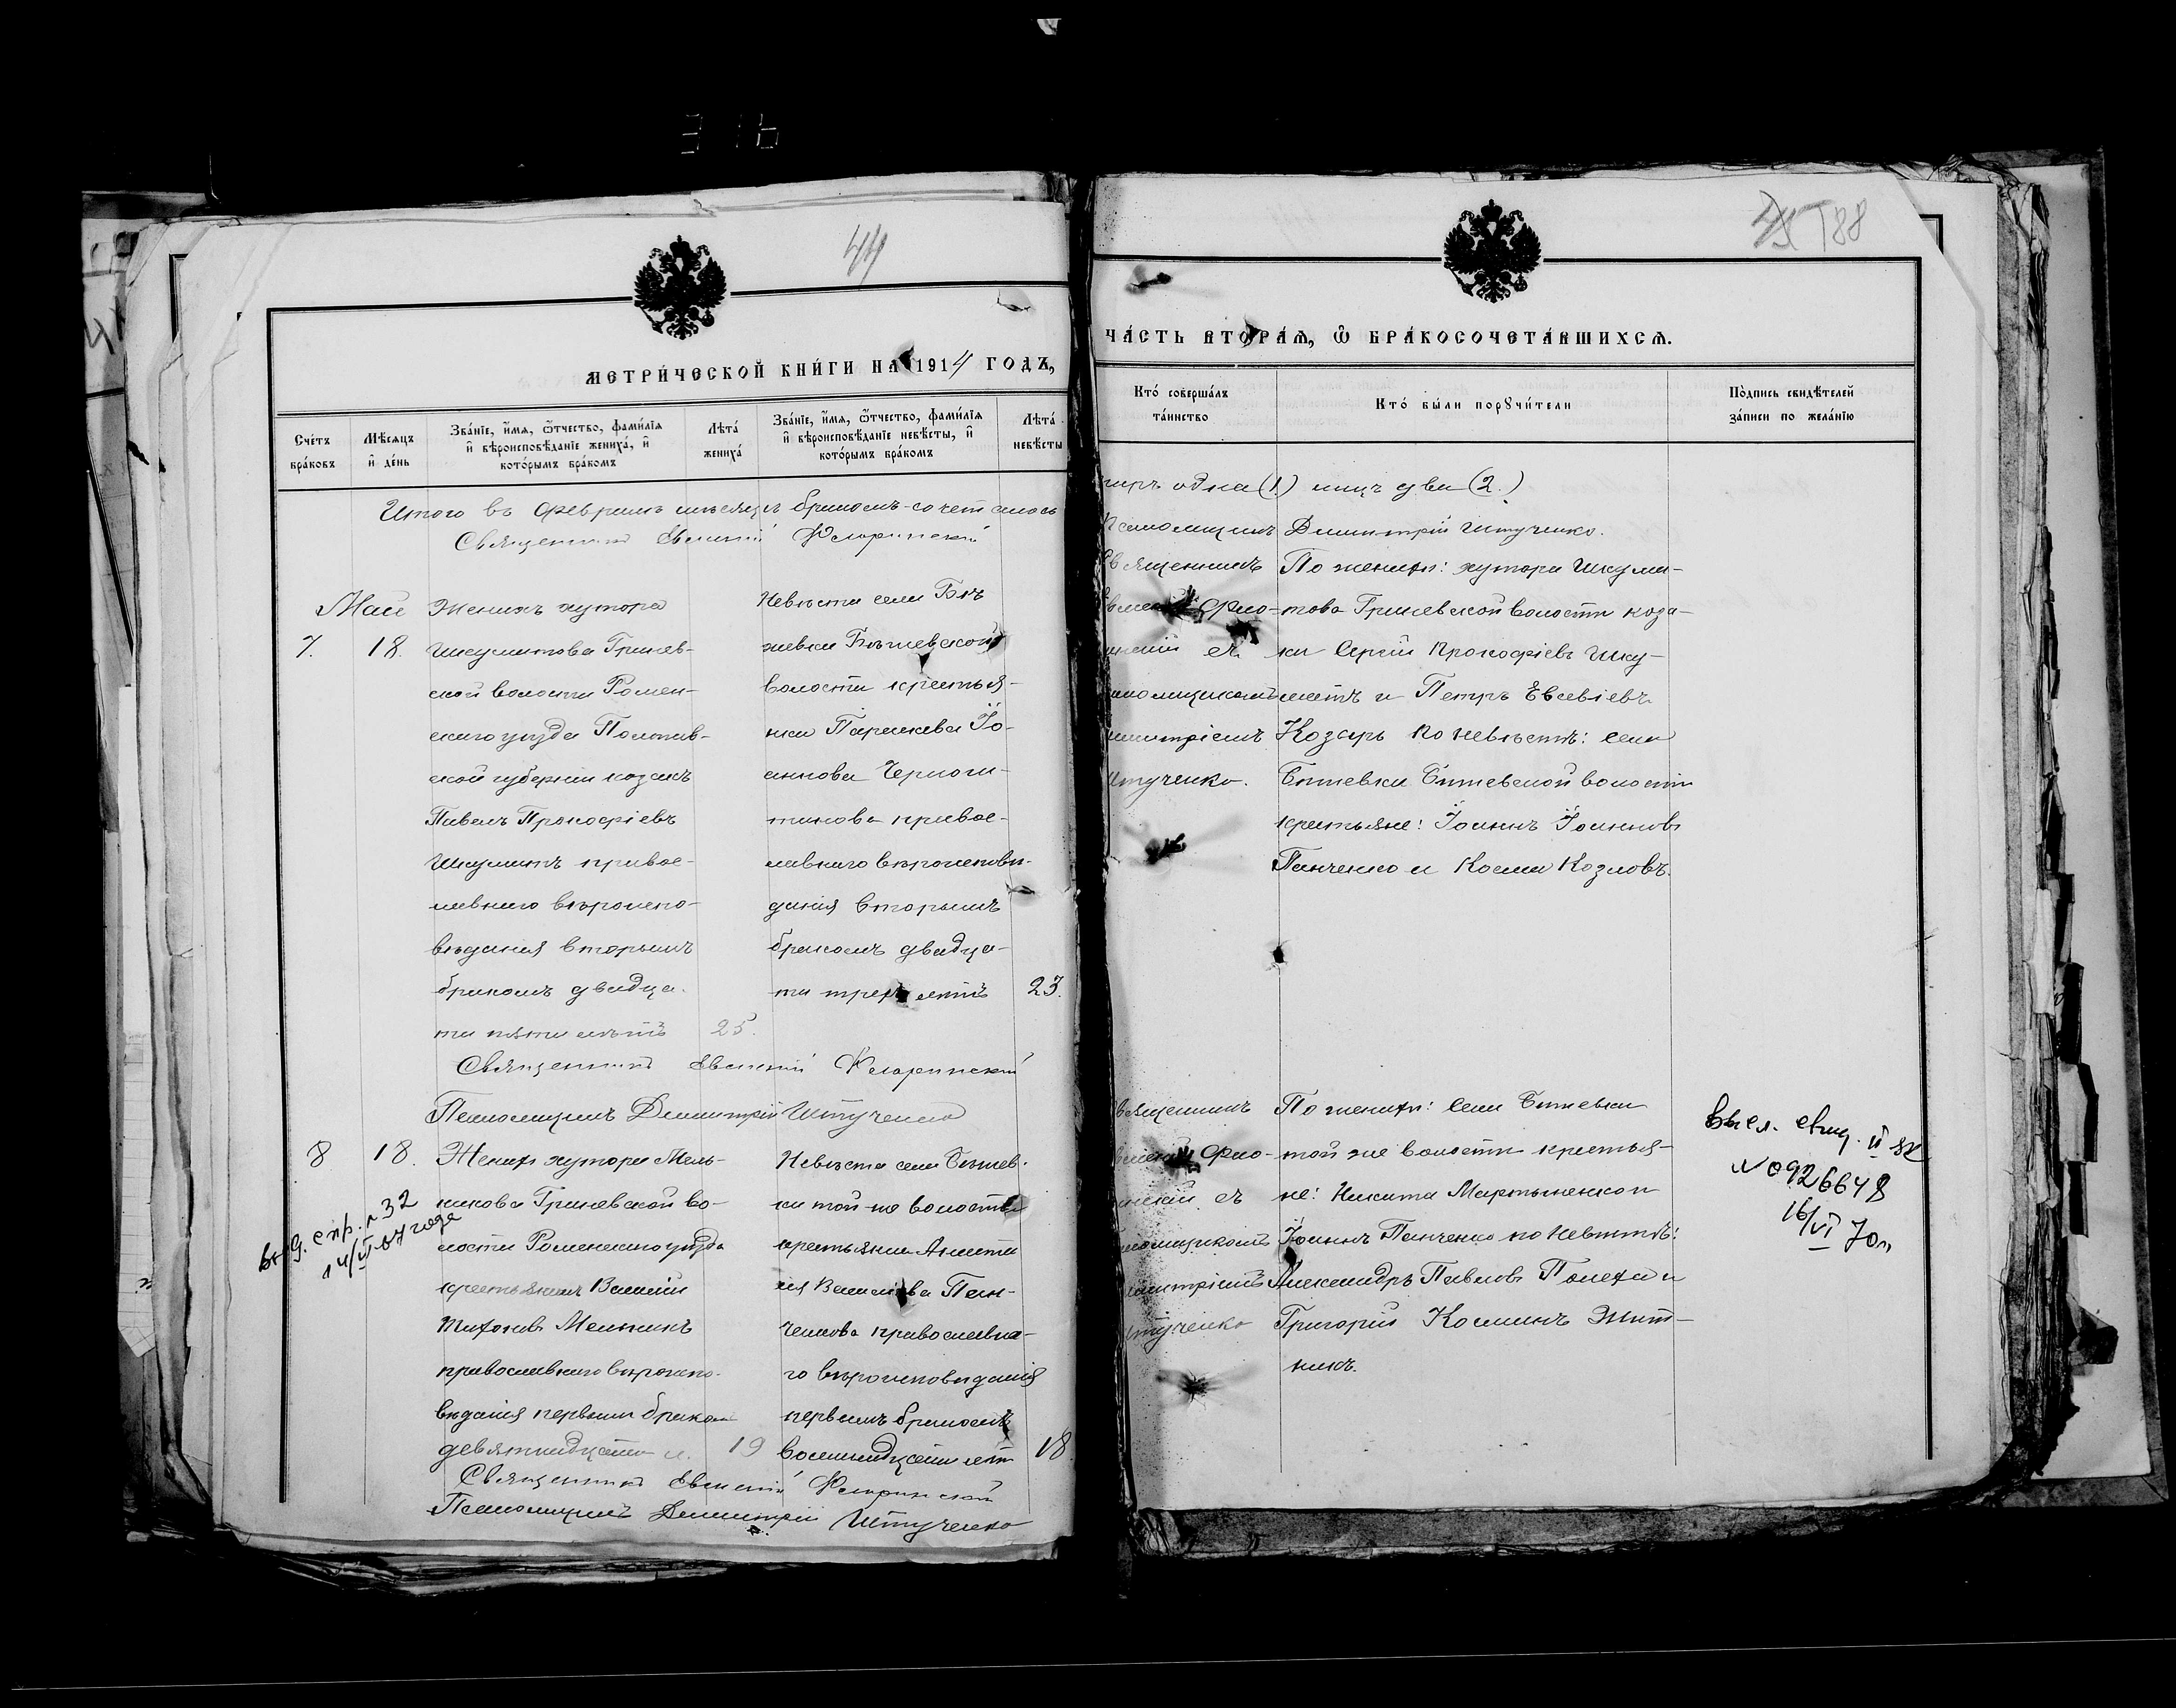 316
44
МЕТРИ́ЧЕСКОЙ КНИ́ГИ НА 1914 ГОДЪ,
Сче́тъ бра́ковъ
Мѣ́сяцъ и҆ де́нь
Зва́нїе, и҆́мѧ, ѻ҆́тчество, фами́лїѧ и҆ вѣроисповѣ́данїе жениха̀, и҆ кото́рымъ бра́комъ
Лѣта̀ жениха̀
Зва́нїе, и҆́мѧ, ѻ҆́тчество, фами́лїѧ и҆ вѣроисповѣ́данїе невѣ́сты, и҆ кото́рымъ бра́комъ
Лѣта̀ невѣ́сты
Итого въ Февралѣ мѣсяцѣ бракомъ сочеталось
Священникъ Евгеній
Май
7. 18.
Женихъ хутора
Шкуматова Гринев-
ской волости Ромен-
скаго уѣзда Полтав-
ской губерніи козакъ
Павелъ Прокофіевъ
Шкуматъ правос-
лавнаго вѣроиспо-
вѣданія вторымъ
бракомъ двадца-
ти пяти лѣтъ 25.
Невѣста села Бѣ
жевки
волости крестья-
нка Параскева Іо-
аннова
правос-
лавнаго вѣроисповѣ-
данія вторымъ
бракомъ двадца-
ти трехъ лѣтъ 23.
Священникъ Евгеній
Псаломщикъ Димитрій Штученко
8 18.
Женихъ хутора Мель-
никова Гриневской во-
лости Роменскаго уѣзда
крестьянинъ Василій
Тихоновъ Мельникъ
православнаго вѣроиспо-
вѣданія первымъ бракомъ
девятнадцати л. 19
Невѣста села
ки той же волости
крестьянка Анаста
сія Василіева Пан-
ченкова православна-
го вѣроисповѣданія
первымъ бракомъ
восемнадцати лѣт 18
Священникъ Евгеній
Псаломщикъ Димитрій Штученко
Выд. спр. №32
14/VI-67 года
188
ЧА́СТЬ ВТОРА́Ѧ, Ѽ БРАКОСОЧЕТА́ВШИХСѦ.
Кто̀ соверша́лъ та́инство
Кто̀ бы́ли порꙋчи́тели
По́дпись свидѣ́телей за́писи по жела́нїю
паръ одна (1.) лицъ два (2.)
Псаломщикъ Димитрій Штученко.
Священникъ
Фло-
ринскій съ
псаломщикомъ
Димитріемъ
Штученко.
По женихѣ: хутора Шкума-
това Гриневской волости коза-
ки Сергій Прокофіевъ Шку-
матъ и Петръ Евсевіевъ
Козарь по невѣстѣ: села
волости
крестьяне: Іоаннъ Іоанновъ
Панченко и Косма Козловъ.
Священникъ
Фло-
ринскій съ
псаломщикомъ
Димитріемъ
Штученко
По женихѣ: села
той же волости крестья-
не: Никита Мартыненко и
Іоаннъ Панченко по невѣстѣ:
Александръ Павловъ Полехаи
Григорій Косминъ Жит-
никъ.
Выел. свид. II
№ 0926648
16/VI 70г.